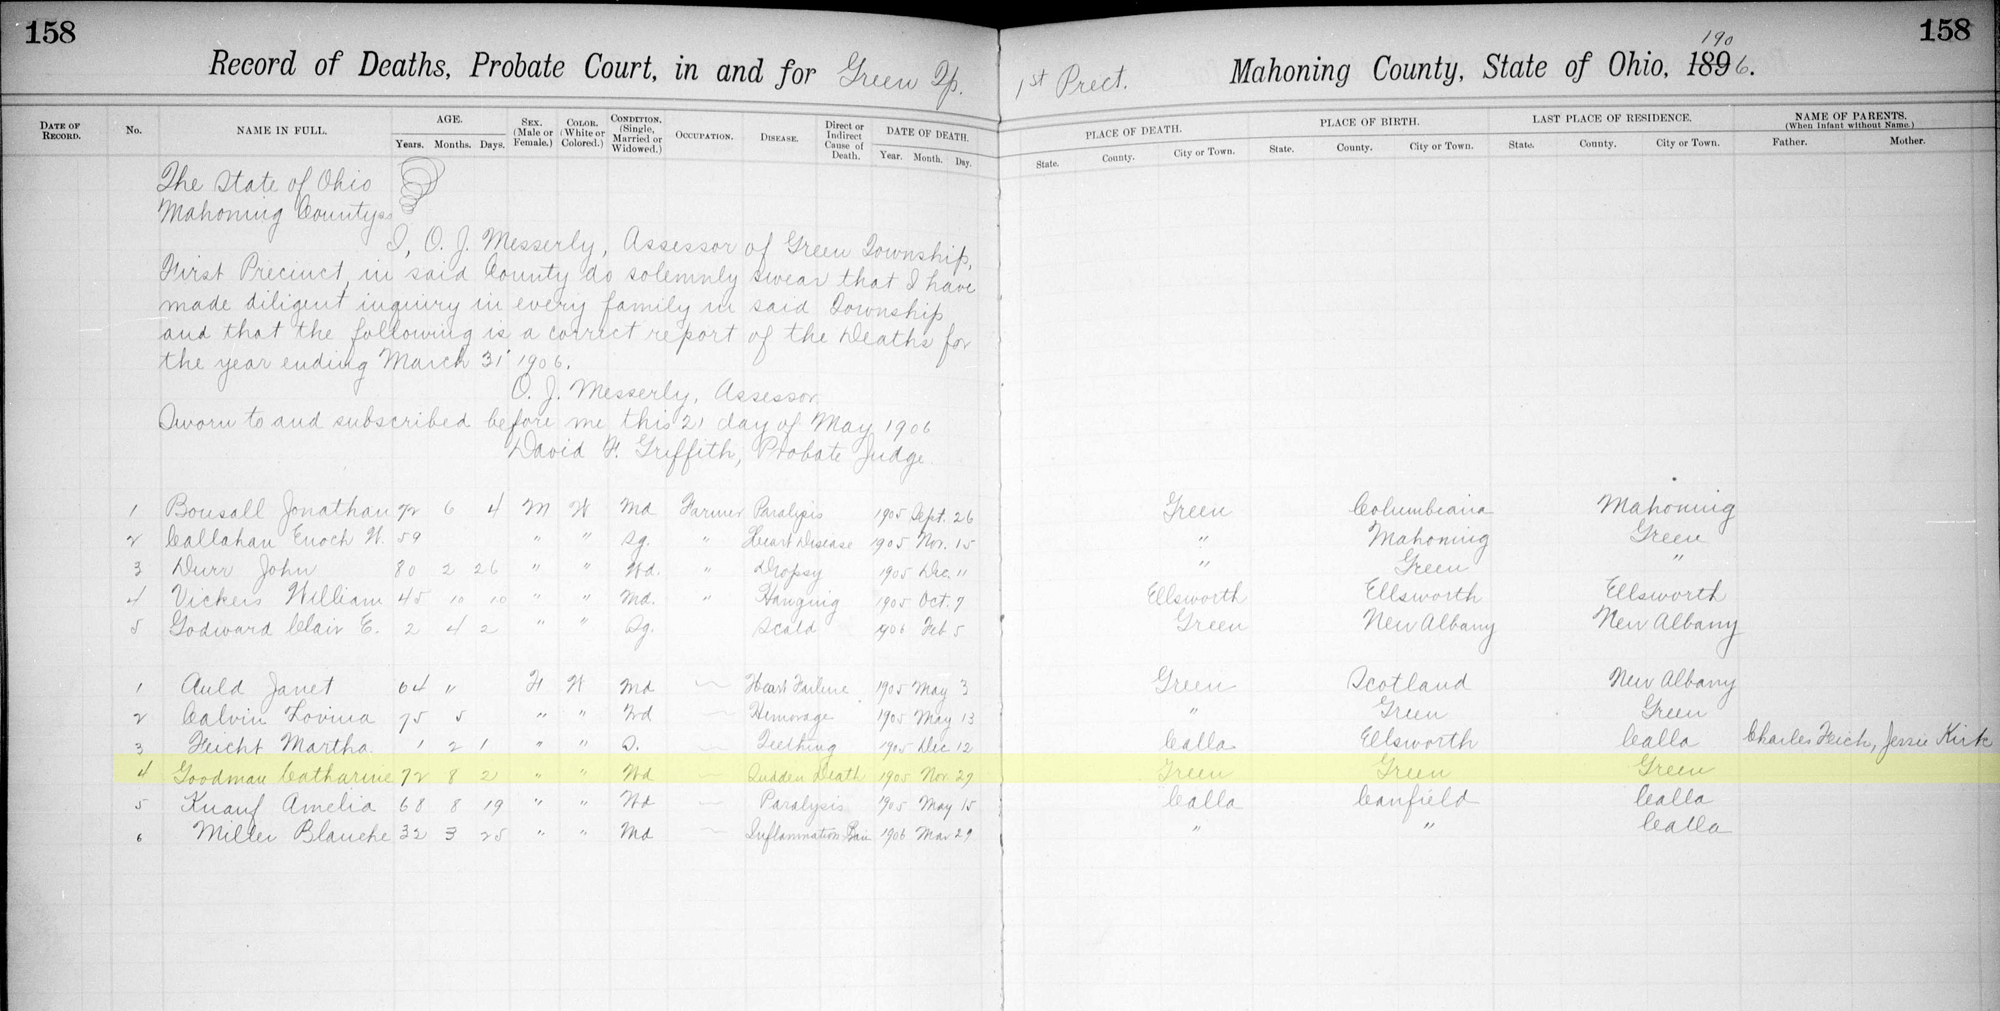 158
158
Record of Deaths, Probate Court, in and for Green Tp. 1st Prect. Mahoning County, State of Ohio, 1896.
190
DATE OF RECORD. No. NAME IN FULL. AGE. Years. Months. Days. SEX. (Male or Female.) COLOR. (White or Colored.) CONDITION. (Single, Married or Widowed.) OCCUPATION. DISEASE. Direct or Indirect Cause of Death. DATE OF DEATH. Year. Month. Day. PLACE OF DEATH. State. County. City or Town. PLACE OF BIRTH. State. County. City or Town. LAST PLACE OF RESIDENCE. State. County. City or Town. NAME OF PARENTS. (When Infant without Name.) Father. Mother.
The State of Ohio
Mahoning County ss
I, O. J. Messerly, Assessor of Green Township,
First Precinct, in said County do solemnly swear that I have
made diligent inquiry in every family in said Township
and that the following is a correct report of the Deaths for
the year ending March 31" 1906.
O. J. Messerly, Assessor
Sworn to and subscribed before me this 21 day of May 1906
David F. Griffith, Probate Judge
1 Bonsall Jonathan 72 6 4 M W Md Farmer Paralysis 1905 Sept. 26 Green Columbiana Mahoning
2 Callahan Enoch W. 59 " " Sg. " Heart Disease 1905 Nov. 15 " Mahoning Green
3 Durr John 80 2 26 " " Wd. " Dropsy 1905 Dec. 11 " Green "
4 Vickers William 45 10 10 " " Md. " Hanging 1905 Oct. 7 Ellsworth Ellsworth Ellsworth
5 Godward Clair E. 2 4 2 " " Sg. Scald 1906 Feb 5 Green New Albany New Albany
1 Auld Janet 64 " F W Md — Heart Failure 1905 May 3 Green Scotland New Albany
2 Calvin Lovina 75 5 " " Wd — Hemorage 1905 May 13 " Green Green
3 Feicht Martha 1 2 1 " " S. — Teething 1905 Dec 12 Calla Ellsworth Calla Charles Feich, Jessie Kirk
4 Goodman Catharine 72 8 2 " " Wd — Sudden Death 1905 Nov 27 Green Green Green
5 Knauf Amelia 68 8 19 " " Wd — Paralysis 1905 May 15 Calla Canfield Calla
6 Miller Blanche 32 3 25 " " Md — Inflammation 1906 Mar 29 " " Calla